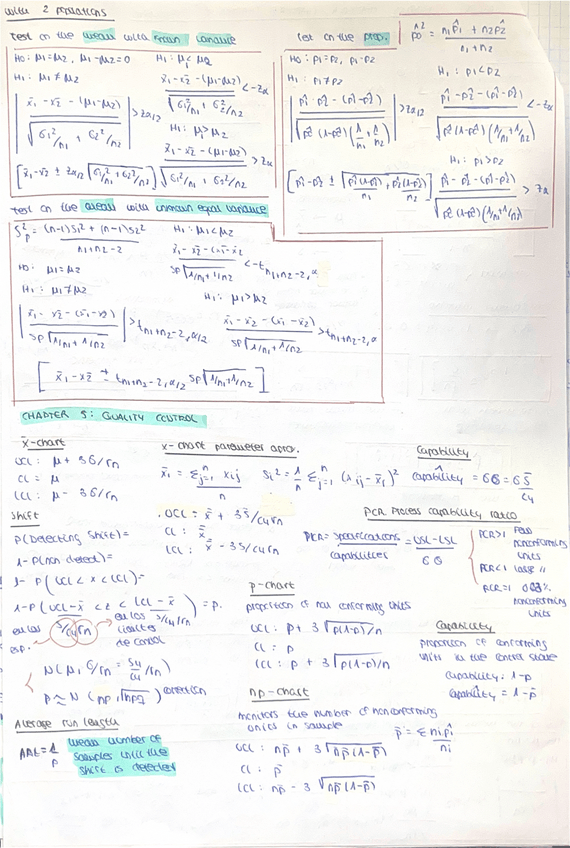 with 2 populations
Test on the mean with known variance
H0: μ1=μ2, μ1-μ2=0
H1: μ1≠μ2
| x̄1-x̄2-(μ1-μ2) / √(σ1²/n1 + σ2²/n2) | > zα/2
[x̄1-x̄2 ± zα/2 √(σ1²/n1 + σ2²/n2)]
H1: μ1<μ2
x̄1-x̄2-(μ1-μ2) / √(σ1²/n1 + σ2²/n2) < -zα
H1: μ1>μ2
x̄1-x̄2-(μ1-μ2) / √(σ1²/n1 + σ2²/n2) > zα
Test on the prop.
p̂0² = n1p̂1 + n2p̂2 / n1+n2
H0: p1=p2, p1-p2
H1: p1≠p2
| p̂1-p̂2-(p̂1-p̂2) / √(p̂(1-p̂)(1/n1 + 1/n2)) | > zα/2
[p̂1-p̂2 ± √(p̂1(1-p̂1)/n1 + p̂2(1-p̂2)/n2)]
H1: p1<p2
p̂1-p̂2-(p̂1-p̂2) / √(p̂(1-p̂)(1/n1+1/n2)) < -zα
H1: p1>p2
p̂1-p̂2-(p̂1-p̂2) / √(p̂(1-p̂)(1/n1+1/n2)) > zα
Test on the mean with unknown equal variance
S²p = (n-1)S1² + (n-1)S2² / n1+n2-2
H0: μ1=μ2
H1: μ1≠μ2
| x̄1-x̄2-(x̄1-x̄2) / Sp√(1/n1+1/n2) | > tn1+n2-2,α/2
H1: μ1<μ2
x̄1-x̄2-(x̄1-x̄2) / Sp√(1/n1+1/n2) < -tn1+n2-2,α
H1: μ1>μ2
x̄1-x̄2-(x̄1-x̄2) / Sp√(1/n1+1/n2) > tn1+n2-2,α
[x̄1-x̄2 ± tn1+n2-2,α/2 Sp√(1/n1+1/n2)]
CHAPTER 5: QUALITY CONTROL
x̄-chart
UCL: μ+3σ/√n
CL = μ
LCL: μ-3σ/√n
Shift
P(Detecting shift)=
1-P(non detect)=
1-P(UCL<x<LCL)=
1-P(UCL-x̄ / S/c4√n < z < LCL-x̄ / S/c4√n) = p.
en los
esp.
en los
límites
de control
N(μ, σ/√n = S4/c4/√n)
p≈N(np, √npq) correction
Average run length
ARL=1/p
mean number of
samples until the
shift is detected
x-chart parameter aprox.
x̄i = Σⁿj=1 xij / n
Si² = 1/n Σⁿj=1 (xij-x̄i)²
UCL = x̄ + 3S/c4√n
CL: x̄
LCL: x̄ - 3S/c4√n
Capability
capability = 6σ = 6S̄/c4
PCR Process capability ratio
PCR = specifications / capabilities = USL-LSL / 6σ
PCR>1 few nonconforming units
PCR<1 large //
PCR=1 nonconforming units
p-chart
proportion of non conforming units
UCL: p+3√p(1-p)/n
CL: p
LCL: p+3√p(1-p)/n
Capability
proportion of conforming
units in the control state
capability: 1-p
capability = 1-p̄
np-chart
monitors the number of nonconforming
units in sample
p̄ = Σ nip̂i / ni
UCL: np̄+3√np̄(1-p̄)
CL: p̄
LCL: np̄-3√np̄(1-p̄)